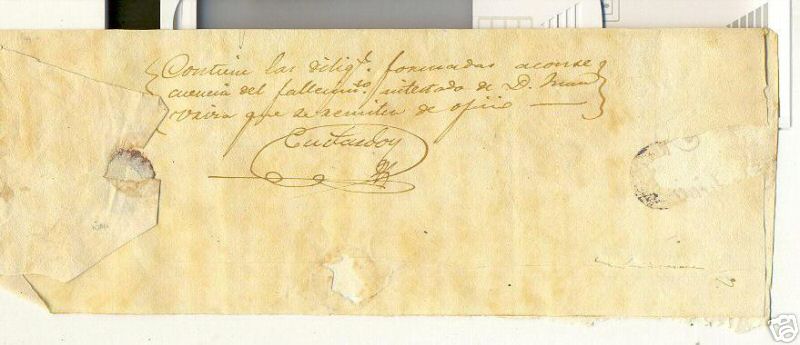 Contiene las dilig.s formadas aconse
cuencia del fallecim.to intestado de D. Juan
Vaira que se remiten de oficio
Custardoy